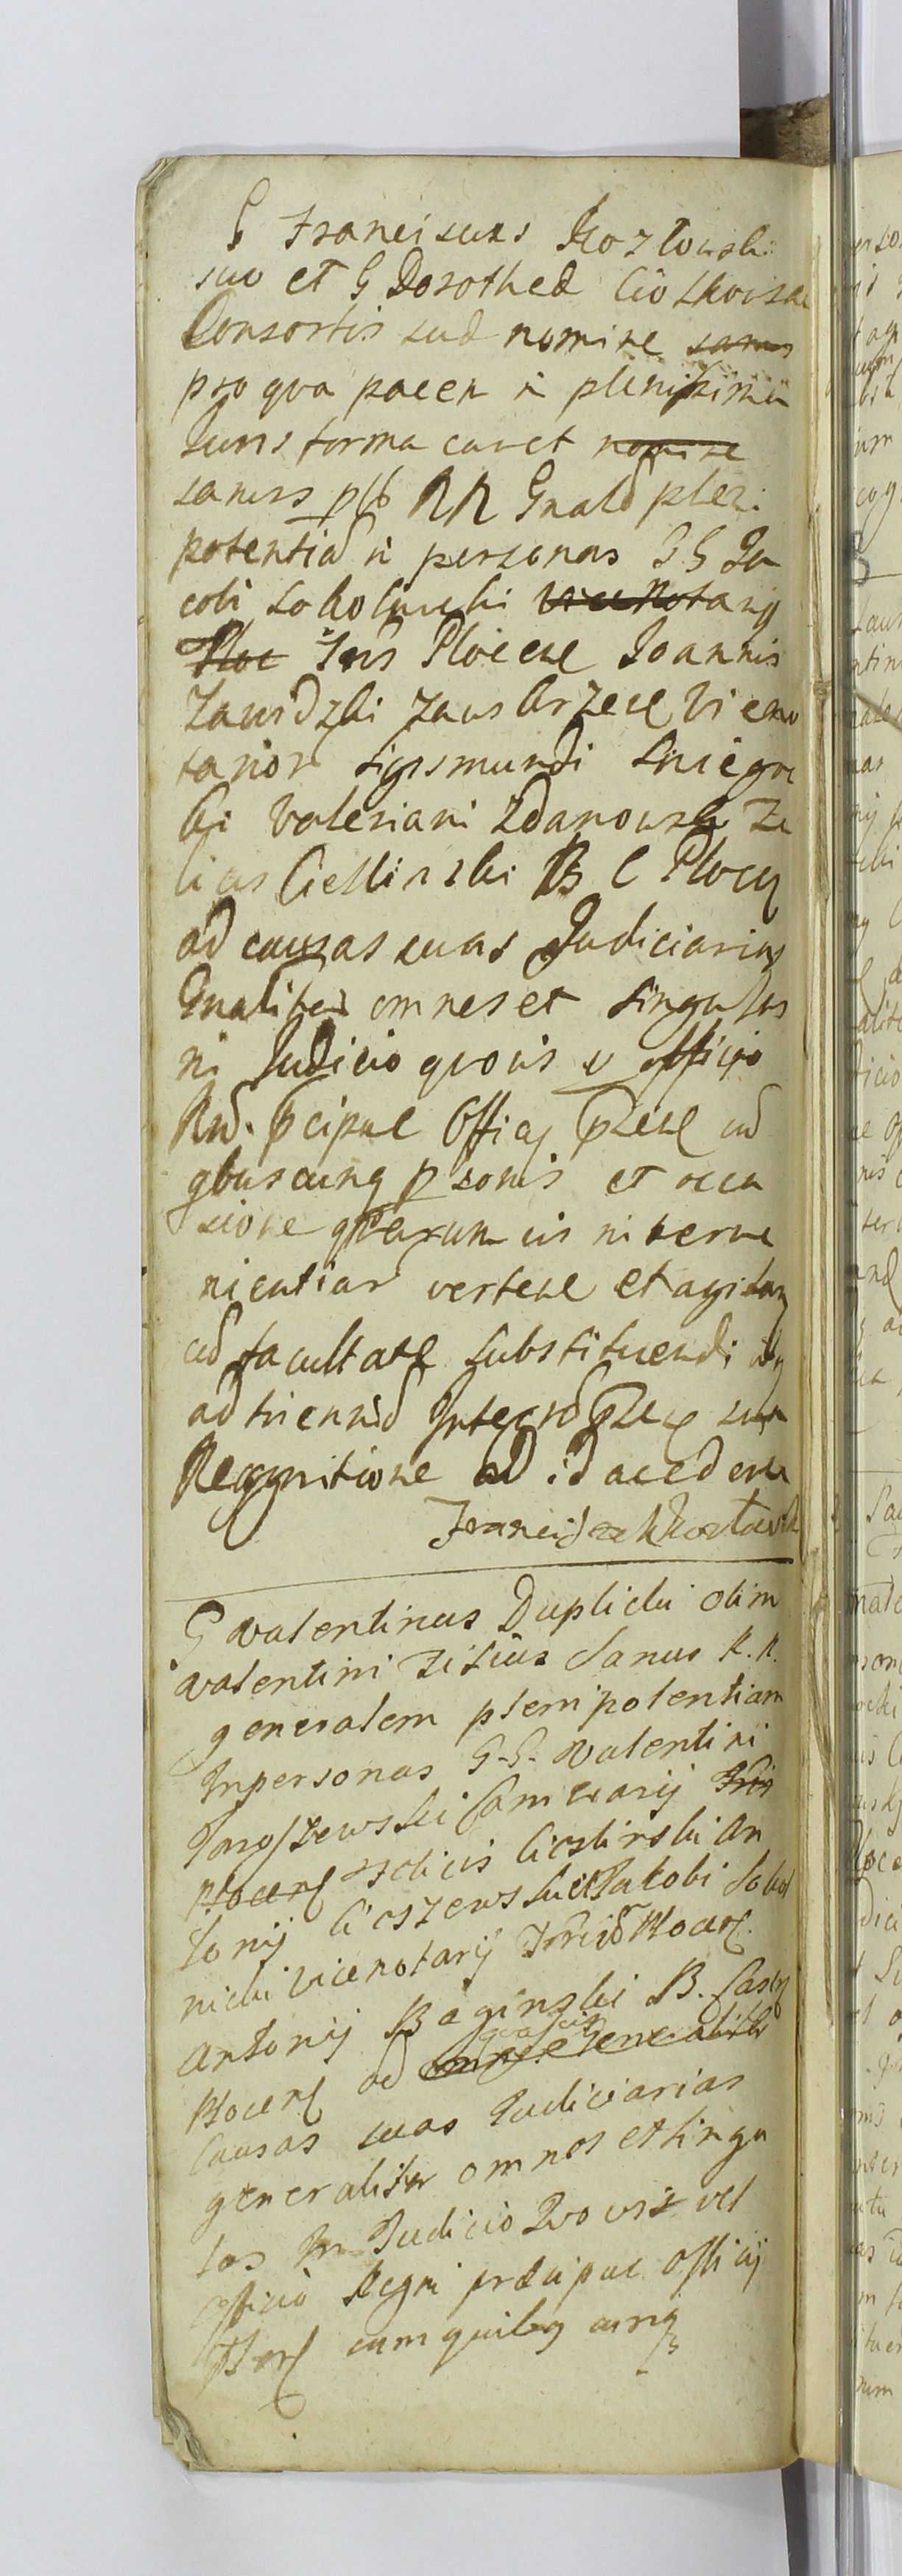 G Franciscus Kozłowski
suo et G Dorothea
Consortis sua nomine sanus
pro qua pacen in plenissima
Juris forma cavet nomine
sanus RR Gnalem pleni
potentia in personas GG Ja
cobi Sokolnicki vicenotarij
Ploc Plocen Joannis
Zawidzki Zawskrzen Viceno
tarior Sigismundi Sniego
ki Valeriani Zdanowski
Cieslinski B C Plocen
ad causas suas Judiciarias
Gnaliter omnes et singulas
in Judicio quovis v officio
Rni. pcipue Officij cum
qbuscunq psonis et occa
sione quarumvis interve
nientiar vertere et agitan
cu facultate substituendi
ad triennium Integrum sua
Recognitione ad id accedente
Franciszek Kozłowski
G Valentinus Duplicki olim
Valentini Filius Sanus R. R.
generalem plenipotentiam
In personas G. G. Valentini
Camerarij
Plocen Felicis Cieslinski An
tonij Cieszewski et Jakobi Sokol
nicki Vicenotarij Plocen.
Antonij Baginski B. Castr
Plocen ad quascun omnes generaliter
Causas suas Judiciarias
generaliter omnes et singu
las In Judicio Quovis vel
officio Regni precipue officij
cum quibus cunq